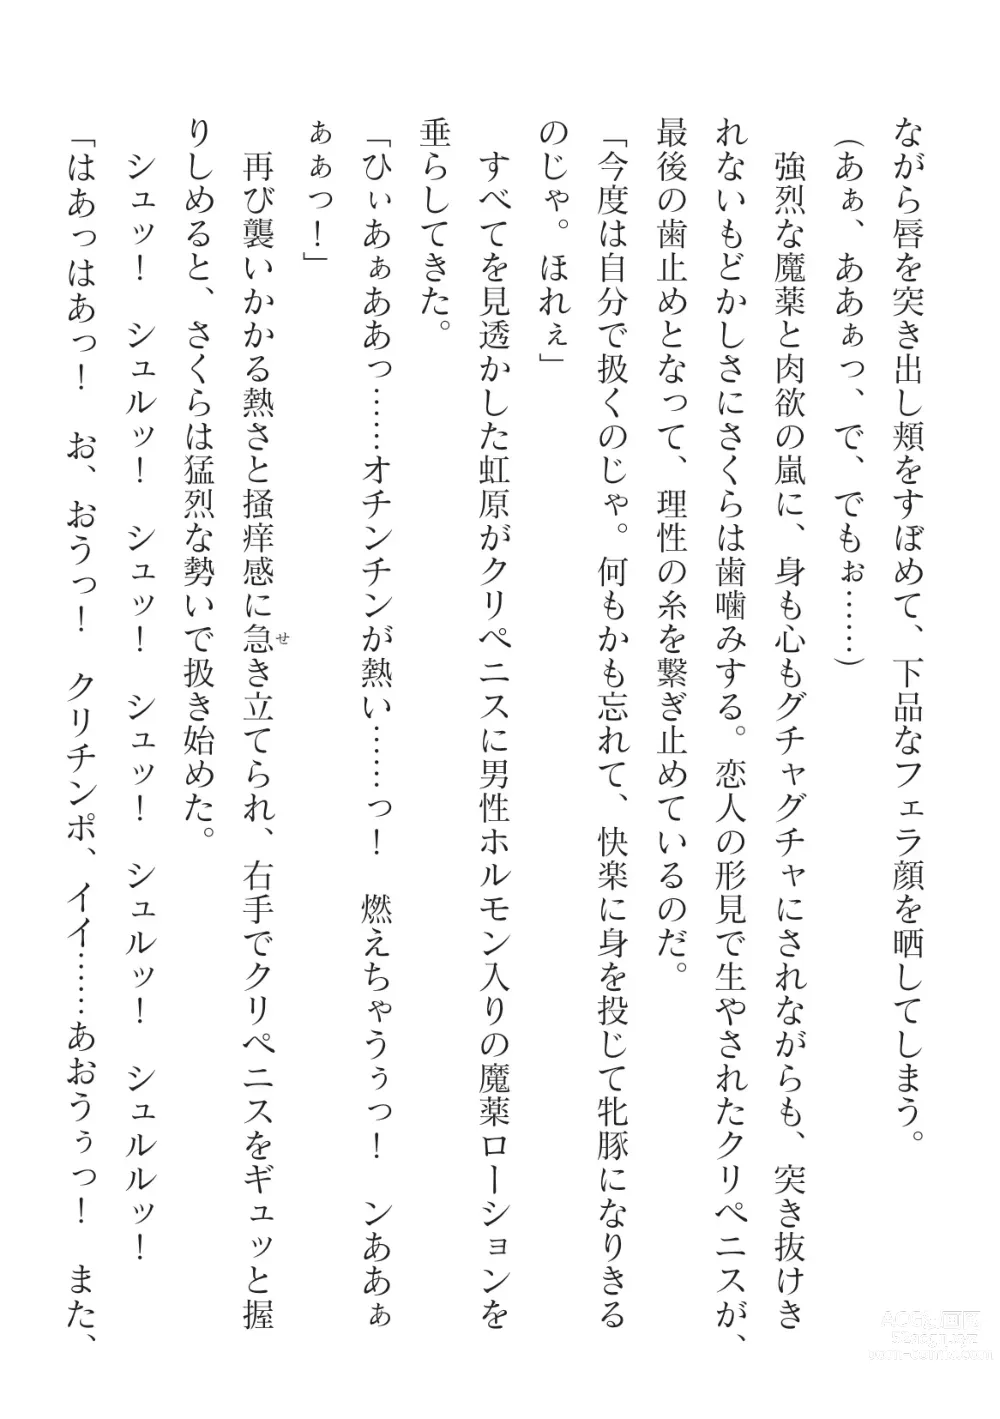 ながら唇を突き出し頬をすぼめて、下品なフェラ顔を晒してしまう。
(あぁ、ああぁっ、で、でもぉ……)
強烈な魔薬と肉欲の嵐に、身も心もグチャグチャにされながらも、突き抜けき
れないもどかしさにさくらは歯噛みする。恋人の形見で生やされたクリペニスが、
最後の歯止めとなって、理性の糸を繋ぎ止めているのだ。
「今度は自分で扱くのじゃ。何もかも忘れて、快楽に身を投じて牝豚になりきる
のじゃ。ほれぇ」
すべてを見透かした虹原がクリペニスに男性ホルモン入りの魔薬ローションを
垂らしてきた。
「ひぃあぁああっ……オチンチンが熱い……っ！　燃えちゃうぅっ！　ンああぁ
ぁぁっ！」
再び襲いかかる熱さと掻痒感に急せき立てられ、右手でクリペニスをギュッと握
りしめると、さくらは猛烈な勢いで扱き始めた。
シュッ！　シュルッ！　シュッ！　シュッ！　シュルッ！　シュルルッ！
「はあっはあっ！　お、おうっ！　クリチンポ、イイ……あおうぅっ！　また、